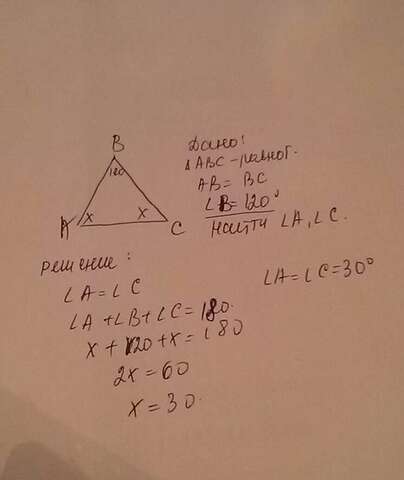 B
120
A
x
x
C
Дано:
△ABC - равноб.
AB = BC
∠B = 120°
Найти ∠A, ∠C.
Решение:
∠A = ∠C
∠A + ∠B + ∠C = 180.
x + 120 + x = 180
2x = 60
x = 30.
∠A = ∠C = 30°